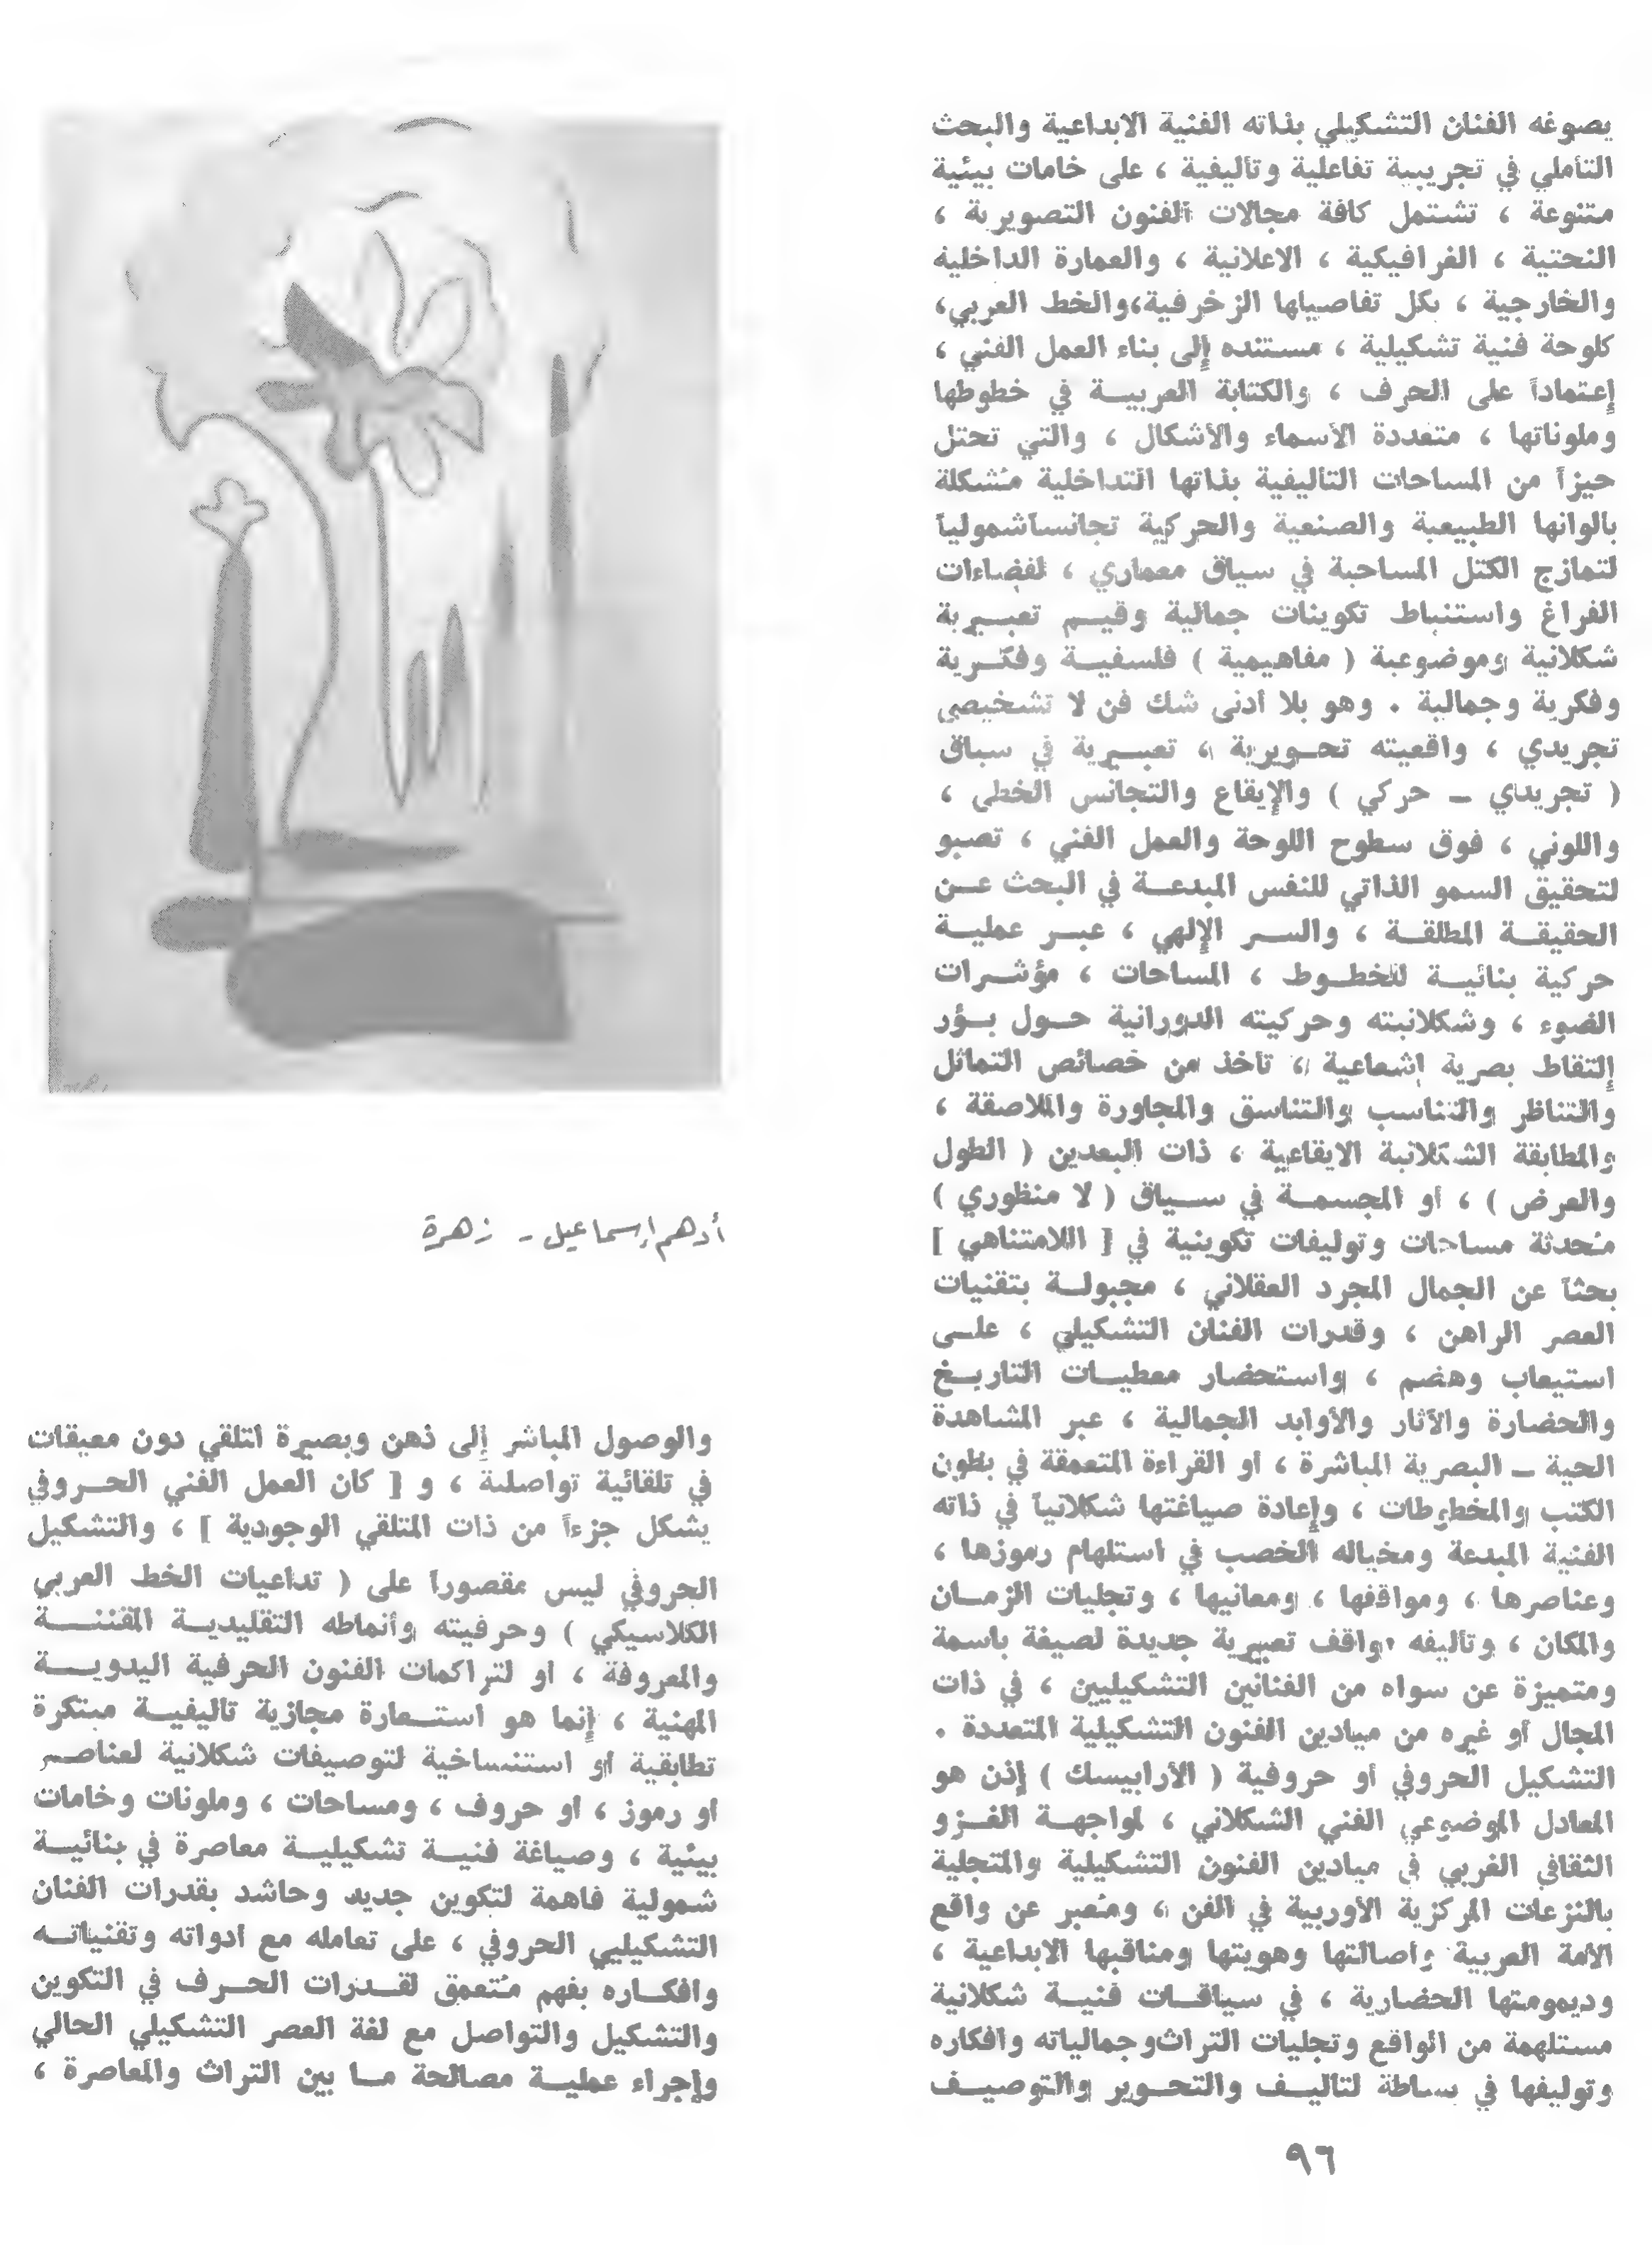 يصوغه الفنان التشكيلي بذاته الفنية الابداعية والبحث
التأملي في تجريبية تفاعلية وتأليفية ، على خامات بيئية
متنوعة ، تشتمل كافة مجالات الفنون التصويرية ،
النحتية ، الغرافيكية ، الاعلانية ، والعمارة الداخلية
والخارجية ، بكل تفاصيلها الزخرفية،والخط العربي،
كلوحة فنية تشكيلية ، مستنده إلى بناء العمل الفني ،
إعتماداً على الحرف ، والكتابة العربيــة في خطوطها
وملوناتها ، متعددة الأسماء والأشكال ، والتي تحتل
حيزاً من المساحات التأليفية بذاتها التداخلية مشكلة
بألوانها الطبيعية والصنعية والحركية تجانساًشمولياً
لتمازج الكتل المساحية في سياق معماري ، لفضاءات
الفراغ واستنباط تكوينات جمالية وقيــم تعبــيرية
شكلانية وموضوعية ( مفاهيمية ) فلسفيــة وفكــرية
وفكرية وجمالية . وهو بلا أدنى شك فن لا تشخيصي
تجريدي ، واقعيته تحــويرية ، تعبــيرية في سياق
( تجريدي ــ حركي ) والإيقاع والتجانس الخطي ،
واللوني ، فوق سطوح اللوحة والعمل الفني ، تصبو
لتحقيق السمو الذاتي للنفس المبدعــة في البحث عــن
الحقيقــة المطلقــة ، والســر الإلهي ، عبــر عمليــة
حركية بنائيــة للخطــوط ، المساحات ، مؤشــرات
الضوء ، وشكلانيته وحركيته الدورانية حــول بــؤر
إلتقاط بصرية إشعاعية ، تأخذ من خصائص التماثل
والتناظر والتناسب والتناسق والمجاورة والملاصقة ،
والمطابقة الشكلانية الايقاعية ، ذات البعدين ( الطول
والعرض ) ، أو المجسمــة في ســياق ( لا منظوري )
مُحدثة مساحات وتوليفات تكوينية في [ اللامتناهي ]
بحثاً عن الجمال المجرد العقلاني ، مجبولــة بتقنيات
العصر الراهن ، وقدرات الفنان التشكيلي ، علــى
استيعاب وهضم ، واستحضار معطيــات التاريــخ
والحضارة والآثار والأوابد الجمالية ، عبر المشاهدة
الحية ــ البصرية المباشرة ، أو القراءة المتعمقة في بطون
الكتب والمخطوطات ، وإعادة صياغتها شكلانياً في ذاته
الفنية المبدعة ومخياله الخصب في استلهام رموزها ،
وعناصرها ، ومواقفها ، ومعانيها ، وتجليات الزمــان
والمكان ، وتأليفه مواقف تعبيرية جديدة لصيغة باسمه
ومتميزة عن سواه من الفنانين التشكيليين ، في ذات
المجال أو غيره من ميادين الفنون التشكيلية المتعددة .
التشكيل الحروفي أو حروفية ( الأرابيسك ) إذن هو
المعادل الموضوعي الفني الشكلاني ، لمواجهــة الغــزو
الثقافي الغربي في ميادين الفنون التشكيلية والمتجلية
بالنزعات المركزية الأوربية في الفن ، ومُعبر عن واقع
الأمة العربية وأصالتها وهويتها ومناقبها الابداعية ،
وديمومتها الحضارية ، في سياقــات فنيــة شكلانية
مستلهمة من الواقع وتجليات التراث وجمالياته وافكاره
وتوليفها في بساطة لتأليــف والتحــوير والتوصيــف
أدهم إسماعيل - زهرة
والوصول المباشر إلى ذهن وبصيرة المتلقي دون معيقات
في تلقائية تواصلية ، و [ كان العمل الفني الحــروفي
يشكل جزءاً من ذات المتلقي الوجودية ] ، والتشكيل
الحروفي ليس مقصوراً على ( تداعيات الخط العربي
الكلاسيكي ) وحرفيته وأنماطه التقليديــة المقننــة
والمعروفة ، أو لتراكمات الفنون الحرفية اليدويــة
المهنية ، إنما هو استــعارة مجازية تأليفيــة مبتكرة
تطابقية أو استنساخية لتوصيفات شكلانية لعناصــر
أو رموز ، أو حروف ، ومساحات ، وملونات وخامات
بيئية ، وصياغة فنيــة تشكيليــة معاصرة في بنائيــة
شمولية فاهمة لتكوين جديد وحاشد بقدرات الفنان
التشكيليي الحروفي ، على تعامله مع أدواته وتقنياتــه
وأفكــاره بفهم مُتعمق لقــدرات الحــرف في التكوين
والتشكيل والتواصل مع لغة العصر التشكيلي الحالي
وإجراء عمليــة مصالحة مــا بين التراث والمعاصرة ،
٩٦